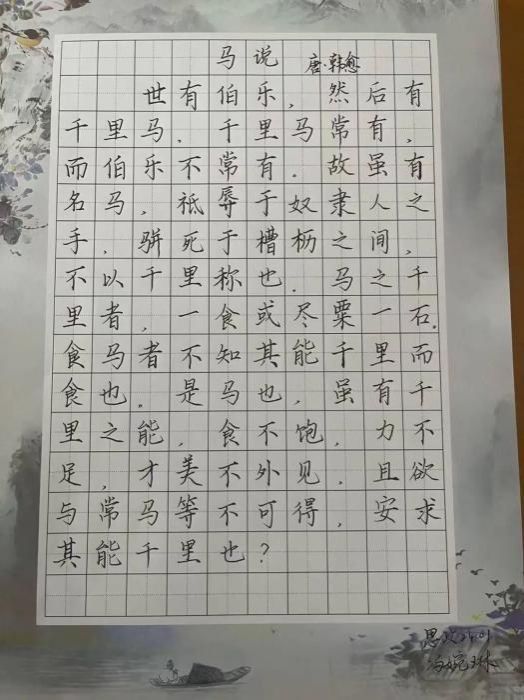 马说
唐·韩愈
世有伯乐，然后有
千里马．千里马常有，
而伯乐不常有．故虽有
名马，祗辱于奴隶人之
手，骈死于槽枥之间，
不以千里称也．马之千
里者，一食或尽粟一石．
食马者不知其能千里而
食也．是马也，虽有千
里之能，食不饱，力不
足，才美不外见．且欲
与常马等不可得，安求
其能千里也？